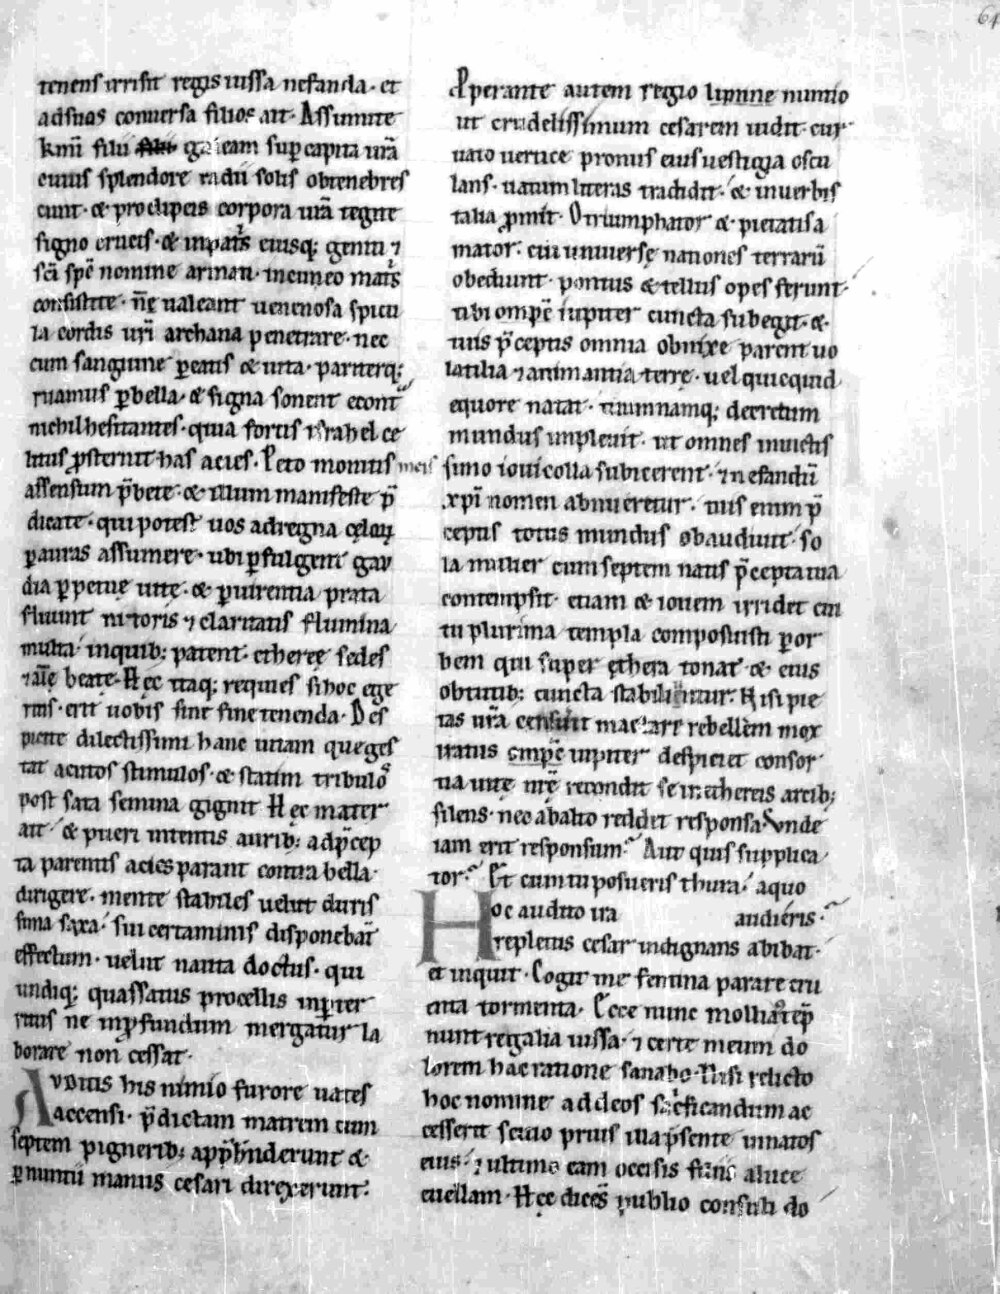 64
tenens irrisit regis iussa nefanda· et
ad suas conuersa filios ait· Assumite
kmi᷑ filii galeam sup capita urā
cuius splendore radii solis obtenebres
cunt· & pro clipeis corpora urā tegite
signo crucis· & in patˢ eiusq; geniti ⁊
sc̄i sp̄c nomine armati· in cuneo matˢ
consistite· ne ualeant uenenosa spicu
la cordis uri᷑ archana penetrare· nec
cum sanguine ꝑeatis & uita· pariterq;
ruamus ꝑ bella· & signa sonent econt᷑
nichil hesitantes· quia fortis israhel ce
litus ꝓsternit has acies· Peto monitis meis
assensum p̄bete· & illum manifeste p̄
dicate· qui potest uos ad regna cęloꝝ
ꝑ auras assumere· ubi ꝑfulgent gau
dia ꝑpetuę uitę· & ꝑ uirentia prata
fluunt nitoris ⁊ claritatis flumina
multa· in quib; patent ethereę sedes
beatę· Hęc itaq; requies si hoc ege
ritis· erit uobis sine fine tenenda· Des
picite dilectissimi hanc uitam que ges
tat acutos stimulos· & statim tribulos
post sata semina gignit Hęc mater
ait· & pueri intentis aurib; ad p̄cep
ta parentis acies parant contra bella
dirigere· mente stabiles uelut duris
sima saxa· sui certaminis disponebat̄
effectum· uelut nauta doctus· qui
undiq; quassatus procellis inꝑter
ritus ne in ꝓfundum mergatur la
borare non cessat·
AVditis his nimio furore uates
accensi· p̄dictam matrem cum
septem pignerib; app̄hnderunt &
ꝑ nuntii manus cesari direxerunt·
Aperante autem regio limine nuntio
ut crudelissimum cesarem uidit· cur
uato uertice pronus eius uestigia oscu
lans· uatum litteras tradidit· & in uerbis
talia ꝓmit· O triumphator & pietatis a
mator· cui uniuersę nationes terrarū
obediunt· pontus & tellus opes ferunt·
tibi omp̄c iupiter cuncta subegit· &
tuis p̄ceptis omnia obnixe parent uo
latilia ⁊ animantia terrę· uel quicquid
equore natat· tuum namq; decretum
mundus impleuit· ut omnes inuictis
simo ioui colla subicerent· ⁊ nefandū
xp̄i nomen abnueretur· tuis enim p̄
ceptis totus mundus obaudiunt· so
la mulier cum septem natis p̄cepta tua
contempsit· etiam & iouem irridet cui
tu plurima templa composuisti ꝑ or
bem qui super ęthera tonat· & eius
obtutib; cuncta stabiliuntur· Nisi pie
tas urā censuit mactare rebellem mox
iratus omp̄c iupiter despiciet consor
tia uitę nrę̄ recondit se in ethereis arcib;
silens· nec ab alto reddet responsa· Vnde
iam erit responsum· Aut quis supplica
tor· Et cum tu posueris thura· a quo
audieris·
Hoc audito ira
repletus cesar indignans abibat·
et inquit· Cogit me femina parare cru
enta tormenta· Ecce nunc mollia tēp
nunt regalia iussa· ⁊ certe meum do
lorem hac ratione sanabo· Nisi relicto
hoc nomine ad deos sacrificandum ac
cesserit scitio prius illa p̄sente in natos
eius· ⁊ ultimo eam occisis filiis a luce
euellam· Hęc dices publio consuli do